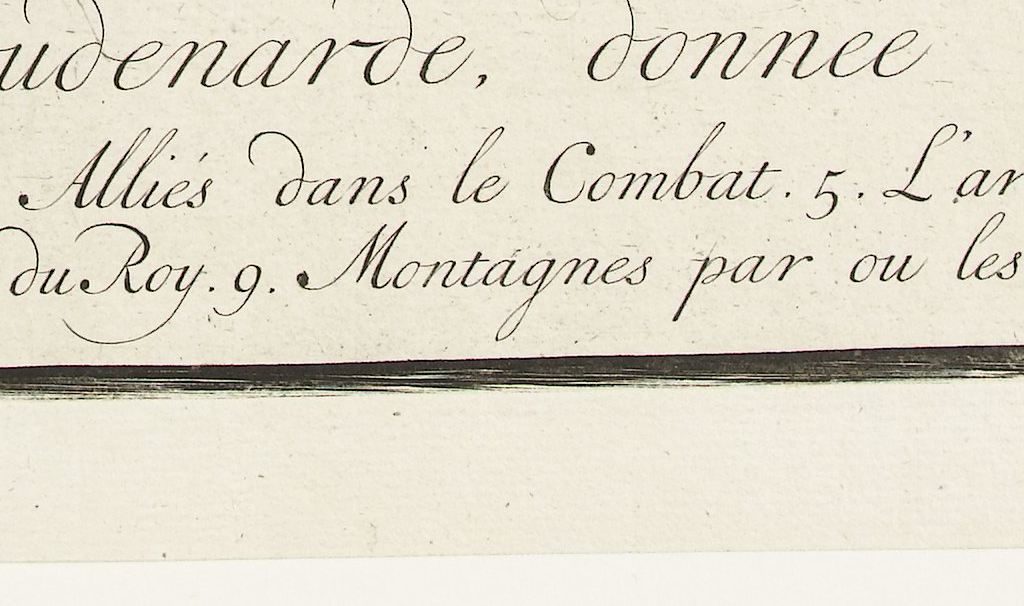 udenarde, donnee
Alliés dans le Combat. 5. L'ar
du Roy. 9. Montagnes par ou les